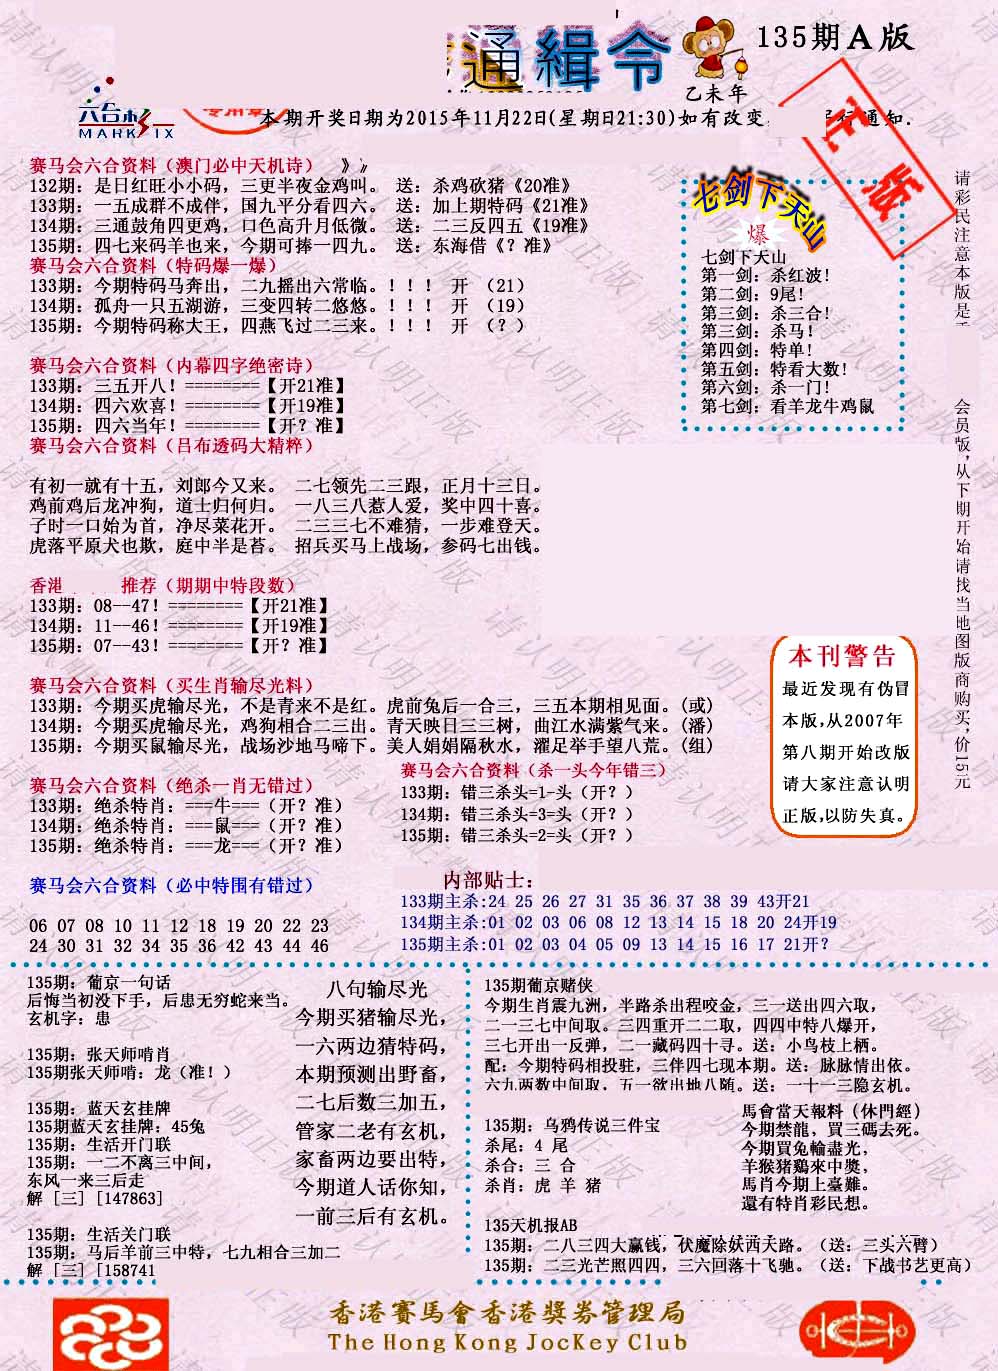 通緝令
135期A版
乙未年
六合彩
MARK SIX
专用章
本期开奖日期为2015年11月22日(星期日21:30)如有改变
通知.
正版
赛马会六合资料（澳门必中天机诗） 》》
132期：是日红旺小小码，三更半夜金鸡叫。 送：杀鸡砍猪《20准》
133期：一五成群不成伴，国九平分看四六。 送：加上期特码《21准》
134期：三通鼓角四更鸡，口色高升月低微。 送：二三反四五《19准》
135期：四七来码羊也来，今期可捧一四九。 送：东海借《？准》
赛马会六合资料（特码爆一爆）
133期：今期特码马奔出，二九摇出六常临。！！！ 开 （21）
134期：孤舟一只五湖游，三变四转二悠悠。！！！ 开 （19）
135期：今期特码称大王，四燕飞过二三来。！！！ 开 （？）
赛马会六合资料（内幕四字绝密诗）
133期：三五开八！========【开21准】
134期：四六欢喜！========【开19准】
135期：四六当年！========【开？准】
赛马会六合资料（吕布透码大精粹）
有初一就有十五，刘郎今又来。 二七领先二三跟，正月十三日。
鸡前鸡后龙冲狗，道士归何归。 一八三八惹人爱，奖中四十喜。
子时一口始为首，净尽菜花开。 二三三七不难猜，一步难登天。
虎落平原犬也欺，庭中半是苔。 招兵买马上战场，参码七出钱。
七剑下天山
爆
七剑下天山
第一剑：杀红波！
第二剑：9尾！
第三剑：杀三合！
第三剑：杀马！
第四剑：特单！
第五剑：特看大数！
第六剑：杀一门！
第七剑：看羊龙牛鸡鼠
请彩民注意本版是
会员版,从下期开始请找当地图版商购买,价15元
香港 推荐（期期中特段数）
133期：08--47！========【开21准】
134期：11--46！========【开19准】
135期：07--43！========【开？准】
赛马会六合资料（买生肖输尽光料）
133期：今期买虎输尽光，不是青来不是红。虎前兔后一合三，三五本期相见面。(或)
134期：今期买虎输尽光，鸡狗相合二三出。青天映日三三树，曲江水满紫气来。(潘)
135期：今期买鼠输尽光，战场沙地马啼下。美人娟娟隔秋水，濯足举手望八荒。(组)
本刊警告
最近发现有伪冒
本版,从2007年
第八期开始改版
请大家注意认明
正版,以防失真。
赛马会六合资料（绝杀一肖无错过）
133期：绝杀特肖：===牛===（开？准）
134期：绝杀特肖：===鼠===（开？准）
135期：绝杀特肖：===龙===（开？准）
赛马会六合资料（杀一头今年错三）
133期：错三杀头=1-头（开？）
134期：错三杀头=3=头（开？）
135期：错三杀头=2=头（开？）
赛马会六合资料（必中特围有错过）
06 07 08 10 11 12 18 19 20 22 23
24 30 31 32 34 35 36 42 43 44 46
内部贴士：
133期主杀:24 25 26 27 31 35 36 37 38 39 43开21
134期主杀:01 02 03 06 08 12 13 14 15 18 20 24开19
135期主杀:01 02 03 04 05 09 13 14 15 16 17 21开？
135期：葡京一句话
后悔当初没下手，后患无穷蛇来当。
玄机字：患
135期：张天师啃肖
135期张天师啃：龙（准！）
135期：蓝天玄挂牌
135期蓝天玄挂牌：45兔
135期：生活开门联
135期：一二不离三中间，
东风一来三后走
解 [三] [147863]
135期：生活关门联
135期：马后羊前三中特，七九相合三加二
解 [三] [158741
八句输尽光
今期买猪输尽光，
一六两边猜特码，
本期预测出野畜，
二七后数三加五，
管家二老有玄机，
家畜两边要出特，
今期道人话你知，
一前三后有玄机。
135期葡京赌侠
今期生肖震九洲，半路杀出程咬金，三一送出四六取，
二一三七中间取。三四重开二二取，四四中特八爆开，
三七开出一反弹，二一藏码四十寻。送：小鸟枝上栖。
配：今期特码相投驻，三伴四七现本期。送：脉脉情出依。
六九两数中间取，五一欲出地八随。送：一十一三隐玄机。
135期：乌鸦传说三件宝
杀尾：4 尾
杀合：三 合
杀肖：虎 羊 猪
馬會當天報料（休門經）
今期禁龍，買三碼去死。
今期買兔輸盡光，
羊猴猪鷄來中獎，
馬肖今期上臺難。
還有特肖彩民想。
135天机报AB
135期：二八三四大赢钱，伏魔除妖西天路。（送：三头六臂）
135期：二三光芒照四四，三六回落十飞驰。（送：下战书艺更高）
香港賽馬會香港獎券管理局
The Hong Kong JocKey Club